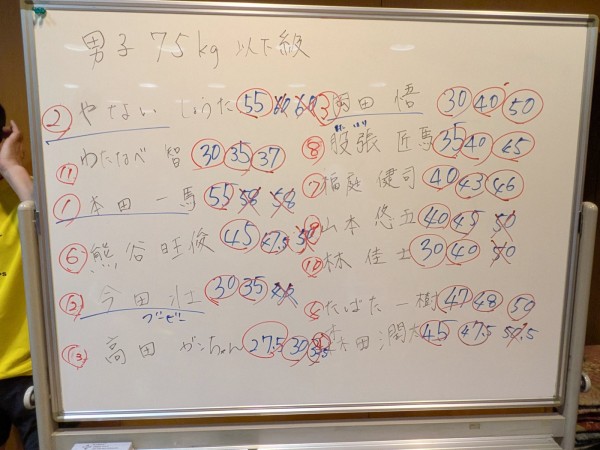 男子 75kg 以下級
② やなない しょうた 55 60 60
⑪ わたなべ 智 30 35 37
① 本田 一馬 55 58 58
⑥ 熊谷 旺俊 45 47.5 50
⑫ 今田 壮
ブービー
30 35 40
⑬ 高田 がんちゃん 27.5 30 32.5
③ 岡田 悟 30 40 50
⑧ 股張 匠馬 35 40 45
⑦ 稲庭 健司 40 43 46
山本 悠五 40 45 50
⑩ 林 佳士 30 40 50
④ たばた 一樹 47 48 50
田 潤 45 47.5 50